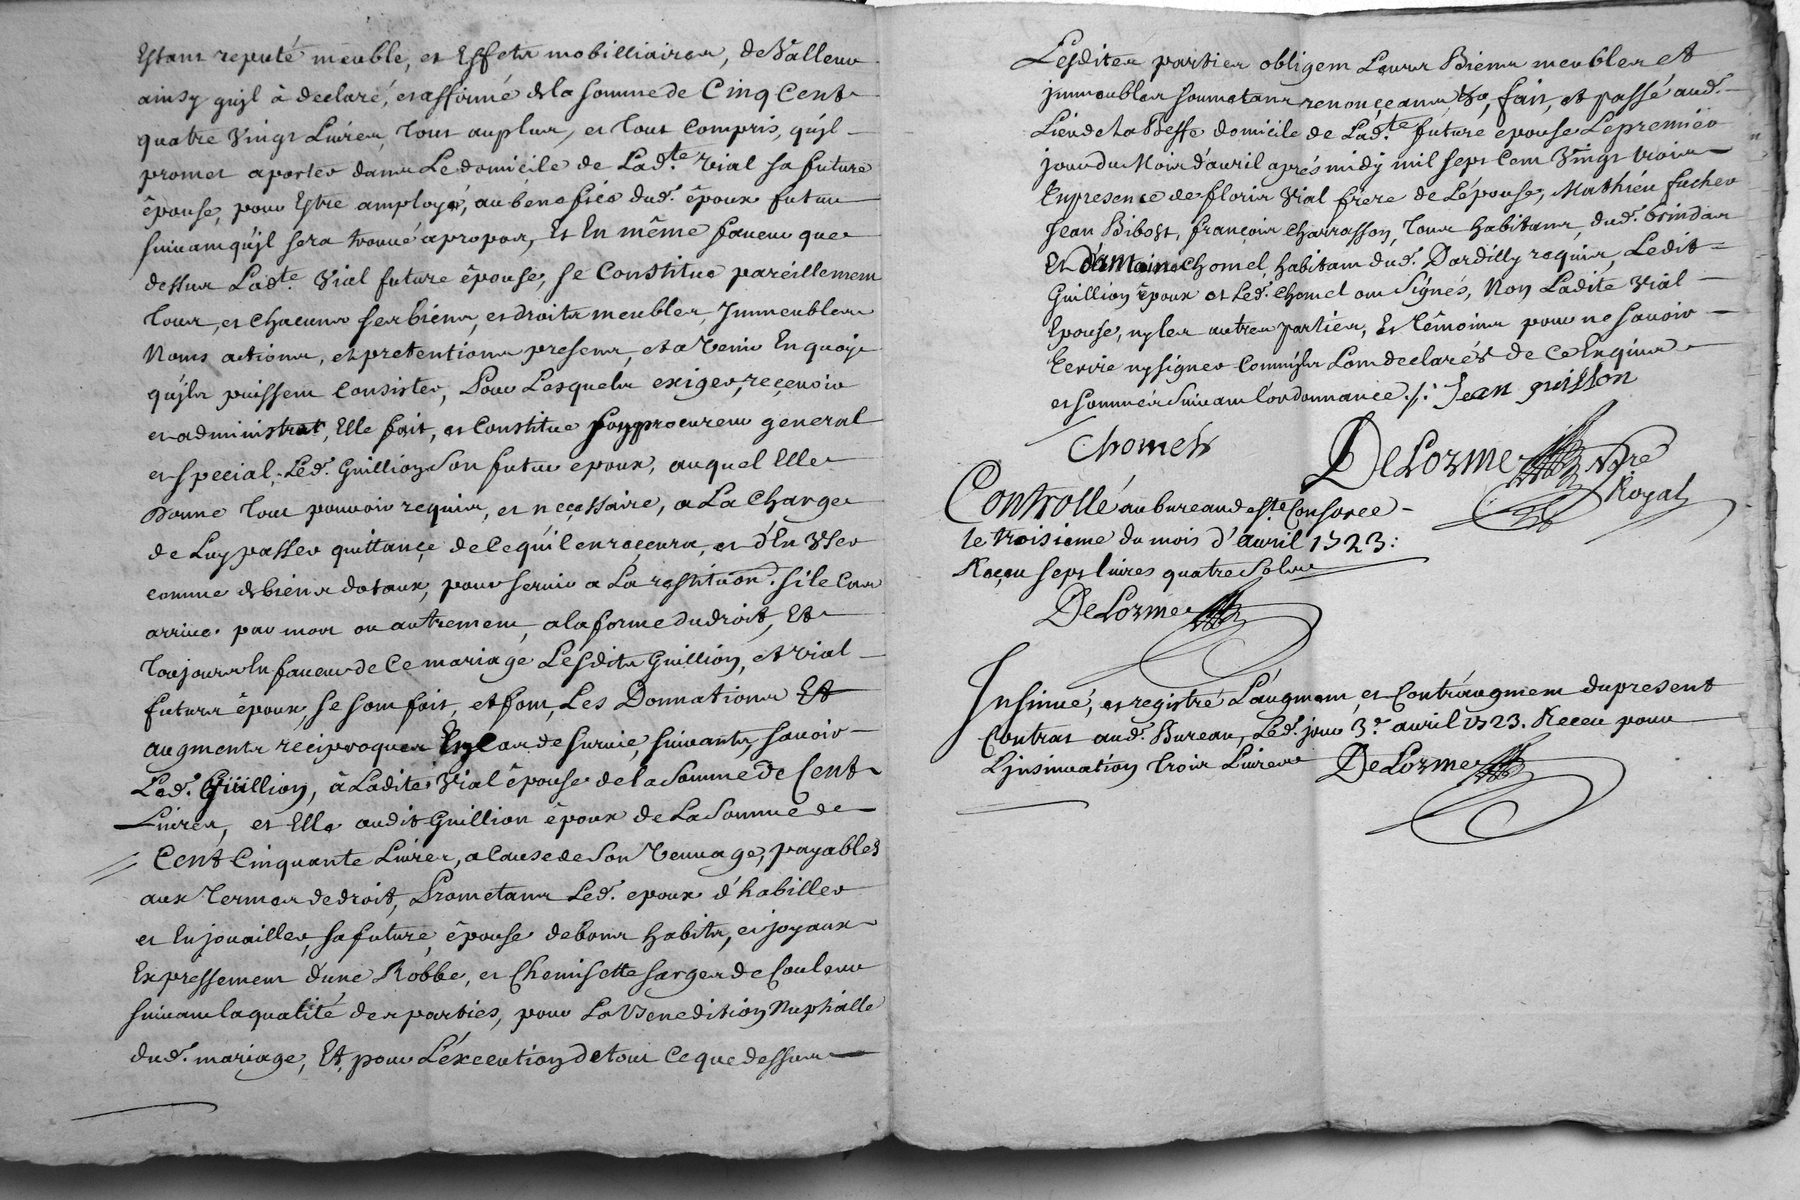 Estant reputé meuble, et Effets mobilliaires, de Valleur
ainsy qu'jl à declaré, et affirmé de la somme de Cinq Cent
quatre Vingt Livres, tout au plus, et tout compris, qu'jl
promet aporter dans Le domicile de Lad.te Vial sa future
épouse, pour Estre amployé, au benefice dud. époux futur
suivant qu'jl sera trouvé apropos, Et En même faveur que
dessus Lad.te Vial future épouse, se Constitue pareillement
tous, et chacuns ses biens, et droits meubles, Immeubles
Noms actions, et pretentions presens, et a Venir En quoy
qu'jls puissent Consister, Pour Lesquels exiger, recevoir
et administrer, Elle fait, et Constitue son procureur general
et special, Led. Guillion son futur epoux, auquel Elle
Donne tout pouvoir requis, et necessaire, a La charge
de Luy passer quittance de ce qu'il en recevra, et d'En Vser
comme de biens dotaux, pour servir a La restitution si le Cas
arrive par mort ou autrement, a la forme du droit, Et
toujours En faveur de Ce mariage Lesdits Guillion, et Vial
futurs époux, se sont fait, et font, Les Donnations Et
augments reciproques En Cas de survie, suivants, savoir
Led. Guillion, à Ladite Vial épouse de la somme de Cent
Livres, et Elle audit Guillion époux de La somme de
Cent Cinquante Livres, a Cause de son Veuvage, payables
aux termes de droit, Prometant Led. epoux d'habiller
et Enjouailler, sa future épouse de bons habits, et joyaux
Expressement d'une Robbe, et Chemisette sarges de Couleur
suivant la qualité des parties, pour La Benediction Nuphialle
dud. mariage, Et pour L'éxecution de tout Ce que dessus
Lesdites parties obligent Leurs Biens meubles et
jmmeubles soumetans renonçeans &c, fait, et passé aud.
Lieu de La Beffe domicile de Lad.te future epouse Le premier
jour du Mois d'avril aprés midy mil sept Cent Vingt trois
En presence de floris Vial frere de L'épouse, Mathieu fucher
Jean Bibost, françois Charrasson, tous habitans, dud.
Et d'Antoine Chomel, habitant dud. Dardilly requis, Ledit
Guillion époux et Led. Chomel ont Signés, Non Ladite Vial
Epouse, ny les autres parties, Et têmoins pour ne savoir
Ecrire ny signer Comm'jls L'ont declarés de Ce Enquis
et sommés suivant L'ordonnance ./. Jean guillon
Chomel
DeLorme No.re
Royal
Controllé au bureau de S.te Consorce
le troisieme du mois d'avril 1723:
Reçeu sept livres quatre sols
DeLorme
Insinué, et registré L'augment, et Contr'augment du present
Contrat aud. Bureau, Led. jour 3.e avril 1723. Receu pour
L'jnsinuation trois Livres DeLorme